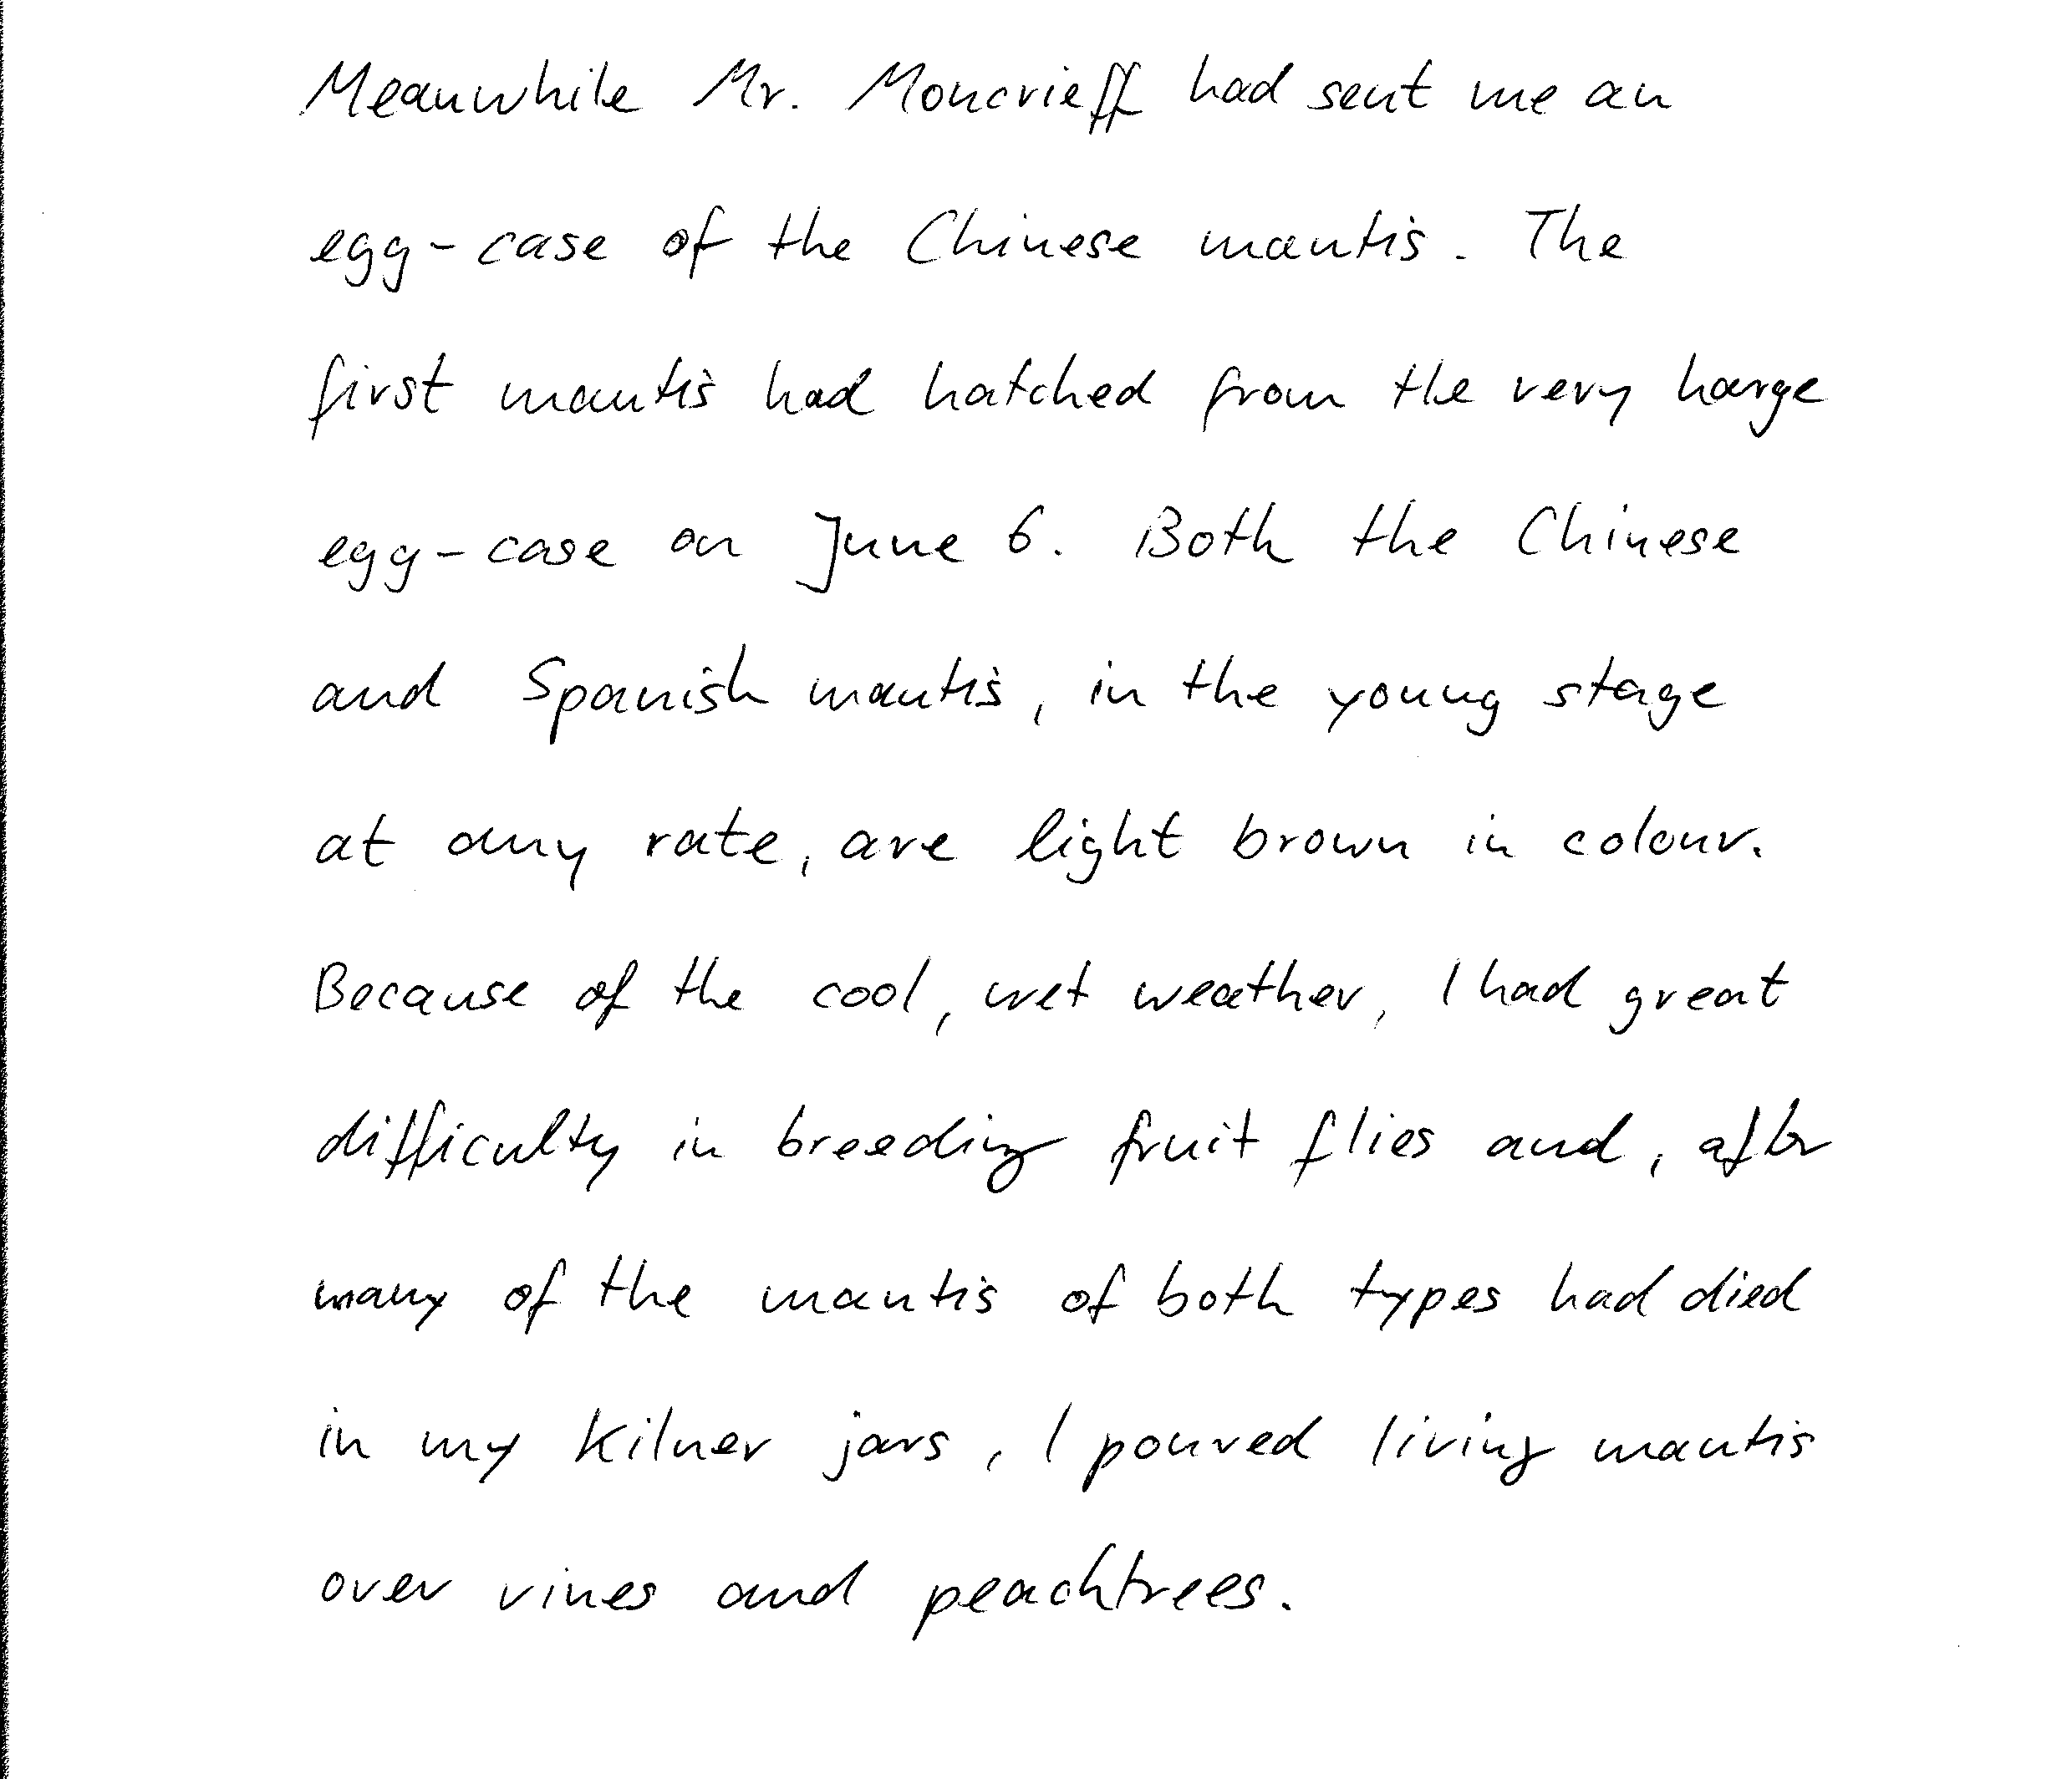 Meanwhile Mr. Moncrieff had sent me an
egg-case of the Chinese mantis. The
first mantis had hatched from the very large
egg-case on June 6. Both the Chinese
and Spanish mantis, in the young stage
at any rate, are light brown in colour.
Because of the cool, wet weather, I had great
difficulty in breeding fruit flies and, after
many of the mantis of both types had died
in my Kilner jars, I poured living mantis
over vines and peachtrees.